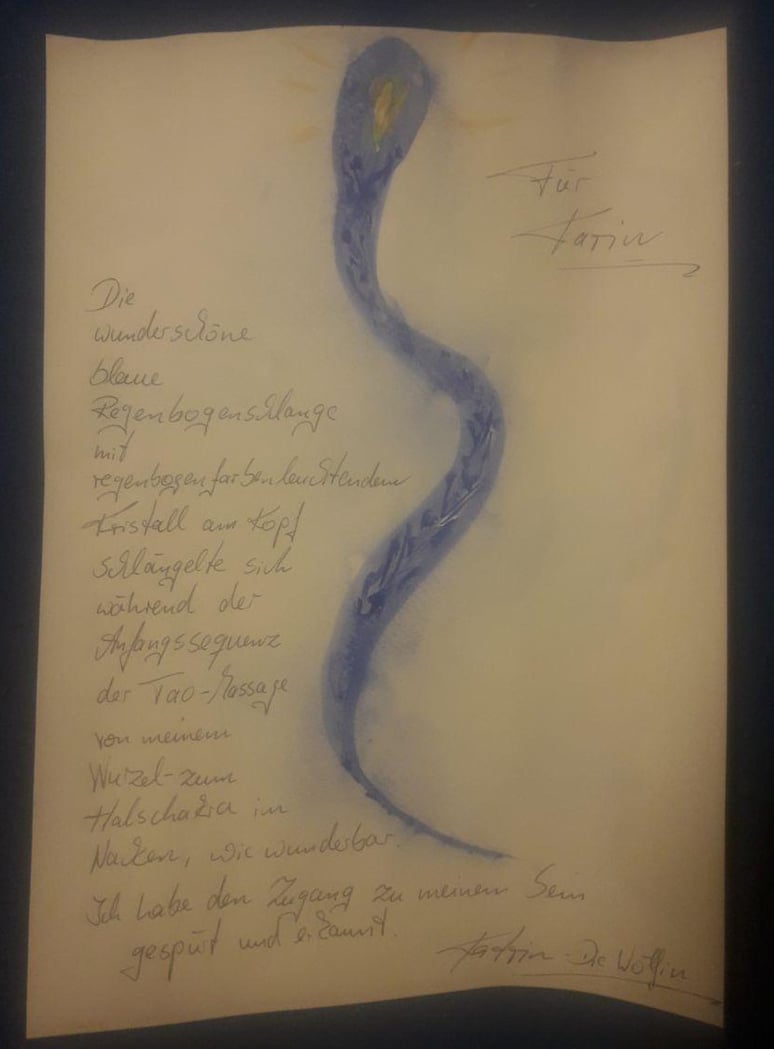 Für
Karin
Die
wunderschöne
blaue
Regenbogenschlange
mit
regenbogenfarbenleuchtendem
Kristall am Kopf
schlängelte sich
während der
Anfangssequenz
der Tao-Massage
von meinem
Wurzel- zum
Halschakra im
Nacken, wie wunderbar.
Ich habe den Zugang zu meinem Sein
gespürt und erkannt.
Katrin - Die Wölfin